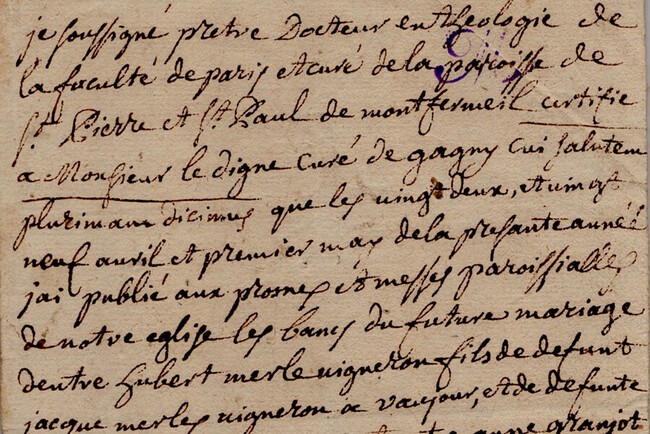 je soussigné pretre Docteur en theologie de
la faculté de paris et curé de la paroisse de
St. Pierre et St. Paul de montfermeil certifie
a Monsieur le digne curé de gagny cui salutem
plurimam dicimus que les vingt deux, et vingt
neuf avril et premier may de la presante année
jai publié aux prosnes et messes paroissialles
de notre eglise les bancs du future mariage
dentre hubert merle vigneron fils de defunt
jacque merles vigneron a vaujour, et de defunte
anne granjot